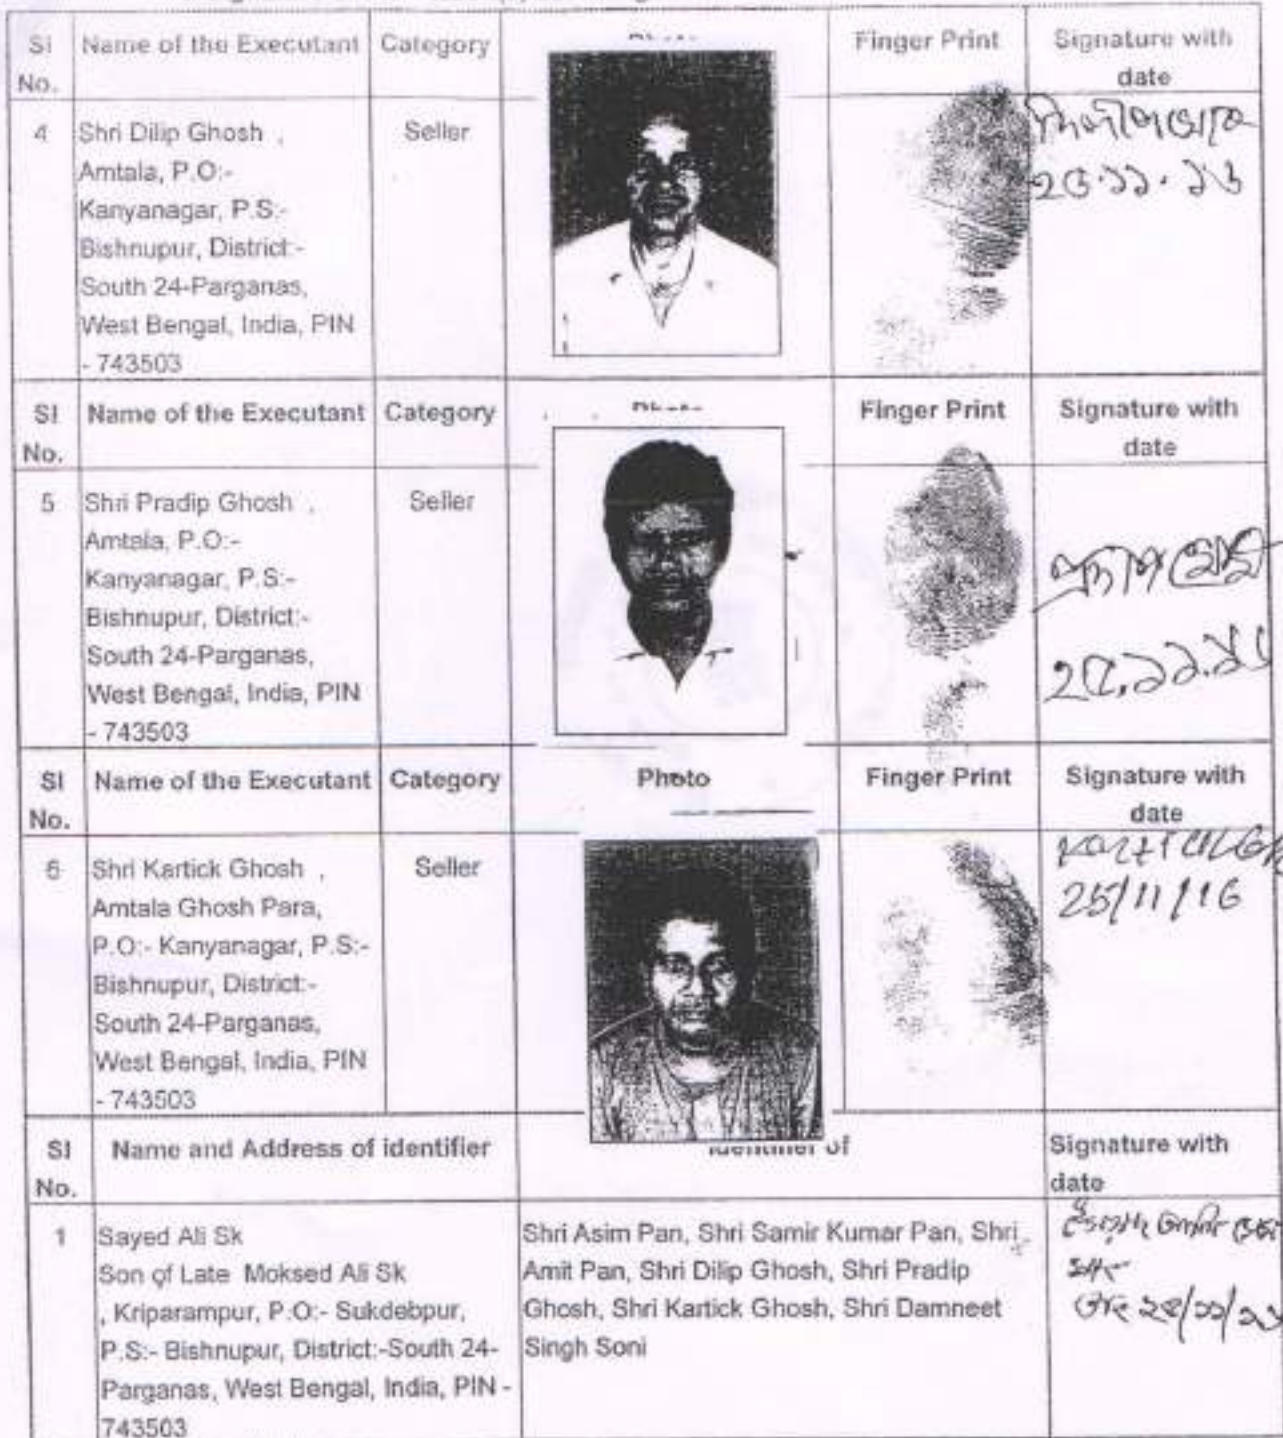 Sl No.
Name of the Executant
Category
Finger Print
Signature with date
4
Shri Dilip Ghosh ,
Amtala, P.O:-
Kanyanagar, P.S:-
Bishnupur, District:-
South 24-Parganas,
West Bengal, India, PIN
- 743503
Seller
Sl No.
Name of the Executant
Category
Photo
Finger Print
Signature with date
5
Shri Pradip Ghosh ,
Amtala, P.O:-
Kanyanagar, P.S:-
Bishnupur, District:-
South 24-Parganas,
West Bengal, India, PIN
- 743503
Seller
Sl No.
Name of the Executant
Category
Photo
Finger Print
Signature with date
6
Shri Kartick Ghosh ,
Amtala Ghosh Para,
P.O:- Kanyanagar, P.S:-
Bishnupur, District:-
South 24-Parganas,
West Bengal, India, PIN
- 743503
Seller
25/11/16
Sl No.
Name and Address of identifier
Identifier of
Signature with date
1
Sayed Ali Sk
Son of Late Moksed Ali Sk
, Kriparampur, P.O:- Sukdebpur,
P.S:- Bishnupur, District:-South 24-
Parganas, West Bengal, India, PIN -
743503
Shri Asim Pan, Shri Samir Kumar Pan, Shri
Amit Pan, Shri Dilip Ghosh, Shri Pradip
Ghosh, Shri Kartick Ghosh, Shri Damneet
Singh Soni